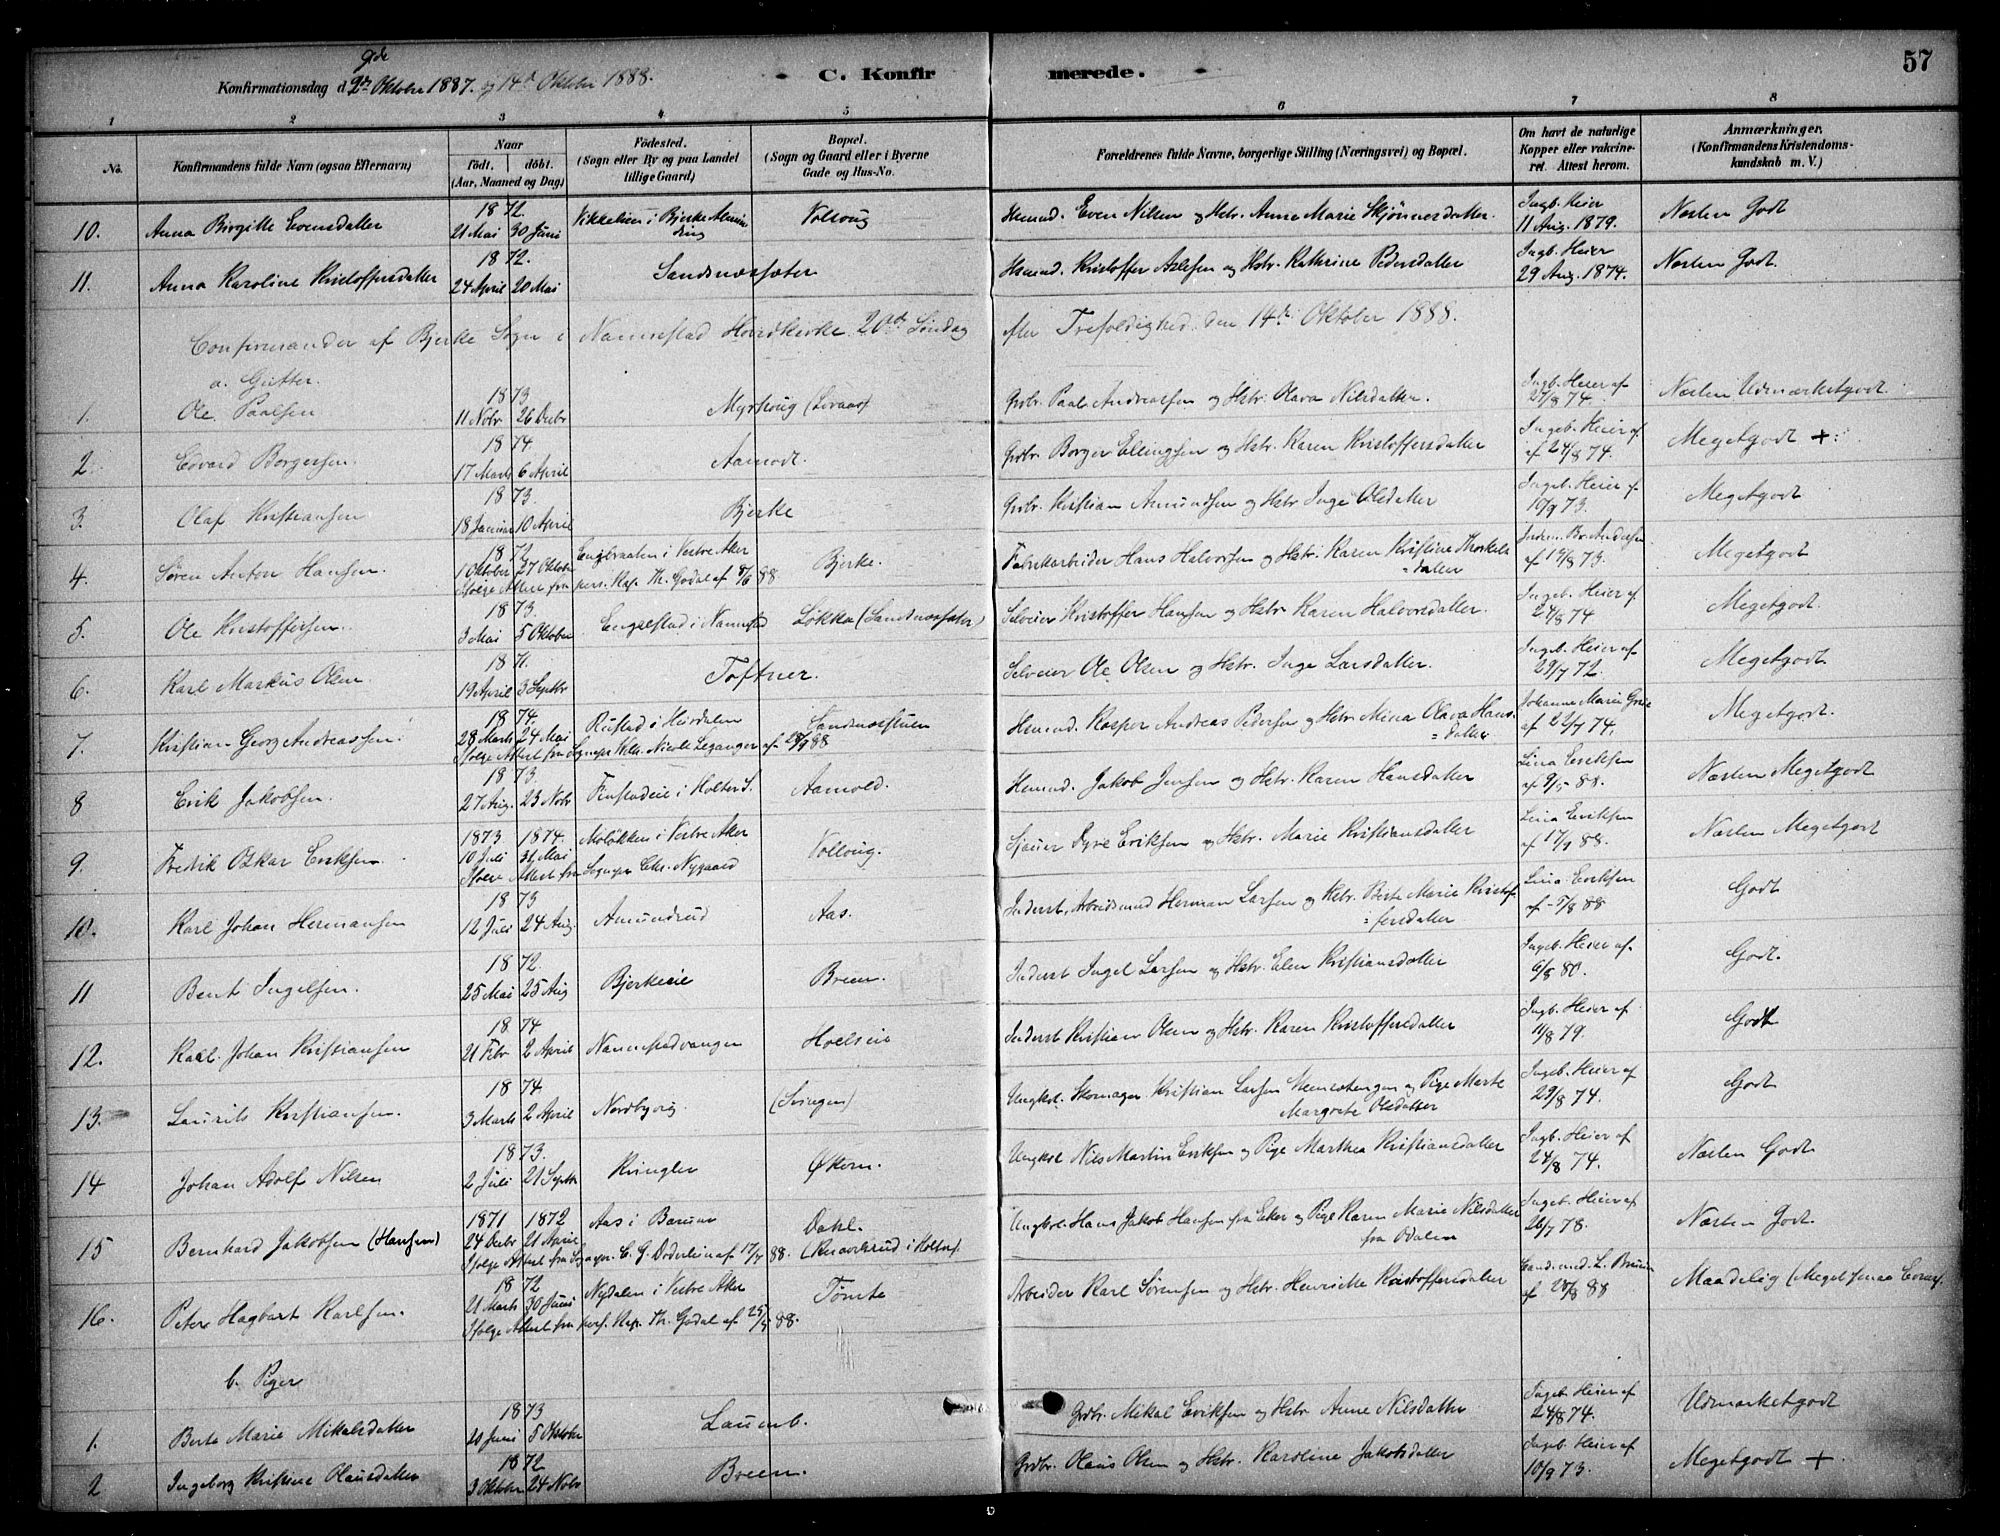 57
Konfirmationsdag d. 9de 2den Oktober 1887. og 14de Oktober 1888.
C. Konfirmerede.
1 2 3 4 5 6 7 8
No. Konfirmandens fulde Navn (ogsaa Efternavn) Naar født. døbt. (Aar, Maaned og Dag) Fødested. (Sogn eller By og paa Landet tillige Gaard) Bopæl. (Sogn og Gaard eller i Byerne Gade og Hus-No. Forældrenes fulde Navne, borgerlige Stilling (Næringsvei) og Bopæl. Om havt de naturlige Kopper eller vakcineret. Attest herom. Anmærkninger. (Konfirmandens Kristendomskundskab m. V.)
10. Anna Birgitte Evensdatter 1872 21 Mai 30 Juni i Bjerke Volloug Husmd. Even Nilsen og Hstr. Anne Marie Skjønnesdatter. Ingb. Heier 11 Aug. 1879. Næsten Godt
11. Anna Karoline Kristoffersdatter 1872. 24 April 20 Mai Sandsnæssæter Husmd. Kristoffer Aslesen og Hstr. Kathrine Pedersdatter Ingb. Heier 29 Aug. 1874. Næsten Godt.
Confirmander af Bjerke Sogn i Nannestad Hovedkirke 20de Søndag efter Trefoldighed. den 14de Oktober 1888.
a. Gutter.
1. Ole Paalsen 1873 11 Novbr 26 Decbr Myrhoug (Løvaas) Grdbr. Paal Andreassen og Hstr. Olava Nilsdatter. Ingb. Heier af 27/8 74. Næsten Udmærketgodt.
2. Edvard Borgersen. 1874. 17 Marts 6 April Aamodt. Grdbr. Borger Ellingsen og Hstr. Karen Kristoffersdatter Ingeb. Heier af 24/8 74. Megetgodt +
3. Olaf Kristiansen 1873. 18 Januar 10 April Bjerke Grdbr. Kristian Amundsen og Hstr Inge Olsdatter Ingeb. Heier af 10/9 73. Megetgodt
4. Søren Anton Hansen. 1872 1 Oktober 27 Oktober Engbraaten i Vestre Aker Bjerke. Fabrikarbeider Hans Halvorsen og Hstr. Karen Kristine Thorkelsdatter Jordm. Br. Andersen af 19/8 73. Megetgodt
Ifølge Attest fra pers. Kap. Th. Godal af 8/6 88
5. Ole Kristoffersen. 1873. 3 Mai 5 Oktober Engelstad i Nannestad Løkka (Sandsnæssæter) Selveier Kristoffer Hansen og Hstr. Karen Halvorsdatter. Ingeb. Heier af 24/8 74 Megetgodt.
6. Karl Markus Olsen 1871. 19 April 3 Septbr Toftner. Selveier Ole Olsen og Hstr. Inge Larsdatter. Ingeb. Heier af 29/7 72. Megetgodt.
7. Kristian Georg Andreassen. 1874. 28 Marts 24 Mai Rustad i Hurdalen Sandsnæsstuen Husmd. Kasper Andreas Pedersen og Hstr. Mina Olava Hansdatter Johanne Marie af 22/7 74. Megetgodt.
Ifølge Attest fra Sogneprs. Nicolle Leganger af 28/9 88
8 Erik Jakobsen. 1873. 27 Aug. 23 Novbr Finstadeie i Holter S. Aamold. Husmd. Jakob Jensen og Hstr. Karen Hansdatter Lina Eriksen af 9/5 88. Næsten Megetgodt
9. Fredrik Oskar Eriksen. 1873 1874. 10 Juli 31 Mai Moløkken i Vestre Aker Volloug. Sjauer Dyre Eriksen og Hstr. Marie Kristiansdatter Lina Eriksen af 17/9 88. Næsten Megetgodt
Ifølge Attest fra Sognepr Chr. Nygaard
10. Karl Johan Hermansen 1873 12 Juli 24 Aug. Amundrud Aas. Inderst, Arbeidsmand Herman Larsen og Hstr. Berte Marie Kristoffersdatter Lina Eriksen af 5/8 88 Godt
11 Bent Ingelsen. 1872. 25 Mai 25 Aug Bjerkeeie Breen. Inderst Ingel Larsen og Hstr. Elen Kristiansdatter Ingeb. Heier af 6/8 80. Godt.
12. Karl Johan Kristiansen 1874 21 Febr 2 April Nannestadvangen Hoelseie Inderst Kristian Olsen og Hstr. Karen Kristoffersdatter Ingb. Heier af 11/8 79. Godt
13. Laurits Kristiansen. 1874 3 Marts 2 April Nordbyvig (Svingen) Ungkal. Skomager Kristian Larsen og Pige Marte Margrete Olsdatter Ingeb. Heier af 29/8 74. Godt
14 Johan Adolf Nilsen 1873. 2 Juli 21 Septbr Kringler Økern. Ungkal Nils Martin Eriksen og Pige Marthea Kristiansdatter Ingb. Heier af 24/8 74. Næsten Godt
15 Bernhard Jakobsen (Hansen) 1871 1872 24 Decbr 21 April Aas i Bærum Dahl. i Holter. Ungkal. Hans Jakob Hansen fra Eker og Pige Karen Marie Nilsdatter fra Odalen Ingeb. Heier af 26/7 78. Næsten Godt.
Ifølge Attest fra Sognepr. C. G. Døderlein af 17/7 88.
16. Peter Hagbart Karlsen. 1872 21 Marts 30 Juni Nydalen i Vestre Aker Tømte Arbeider Karl Sørensen og Hstr. Henriette Kristoffersdatter Cand. med. L. af 28/8 88 Maadelig (Meget smaa Evner)
Ifølge Attest fra pers. Kap. Th. Godal af 25/9 88.
b. Piger
1. Berte Marie Mikalsdatter 1873 20 Juni 5 Oktober Lauenb. Grdbr. Mikal Eriksen og Hstr Anne Nilsdatter Ingeb. Heier af 24/8 74. Udmærketgodt
2 Ingeborg Kristine Olausdatter 1872 3 Oktober 24 Novbr Breen. Grdbr. Olaus Olsen og Hstr. Karoline Jakobsdatter Ingeb. Heier af 10/9 73. Megetgodt +